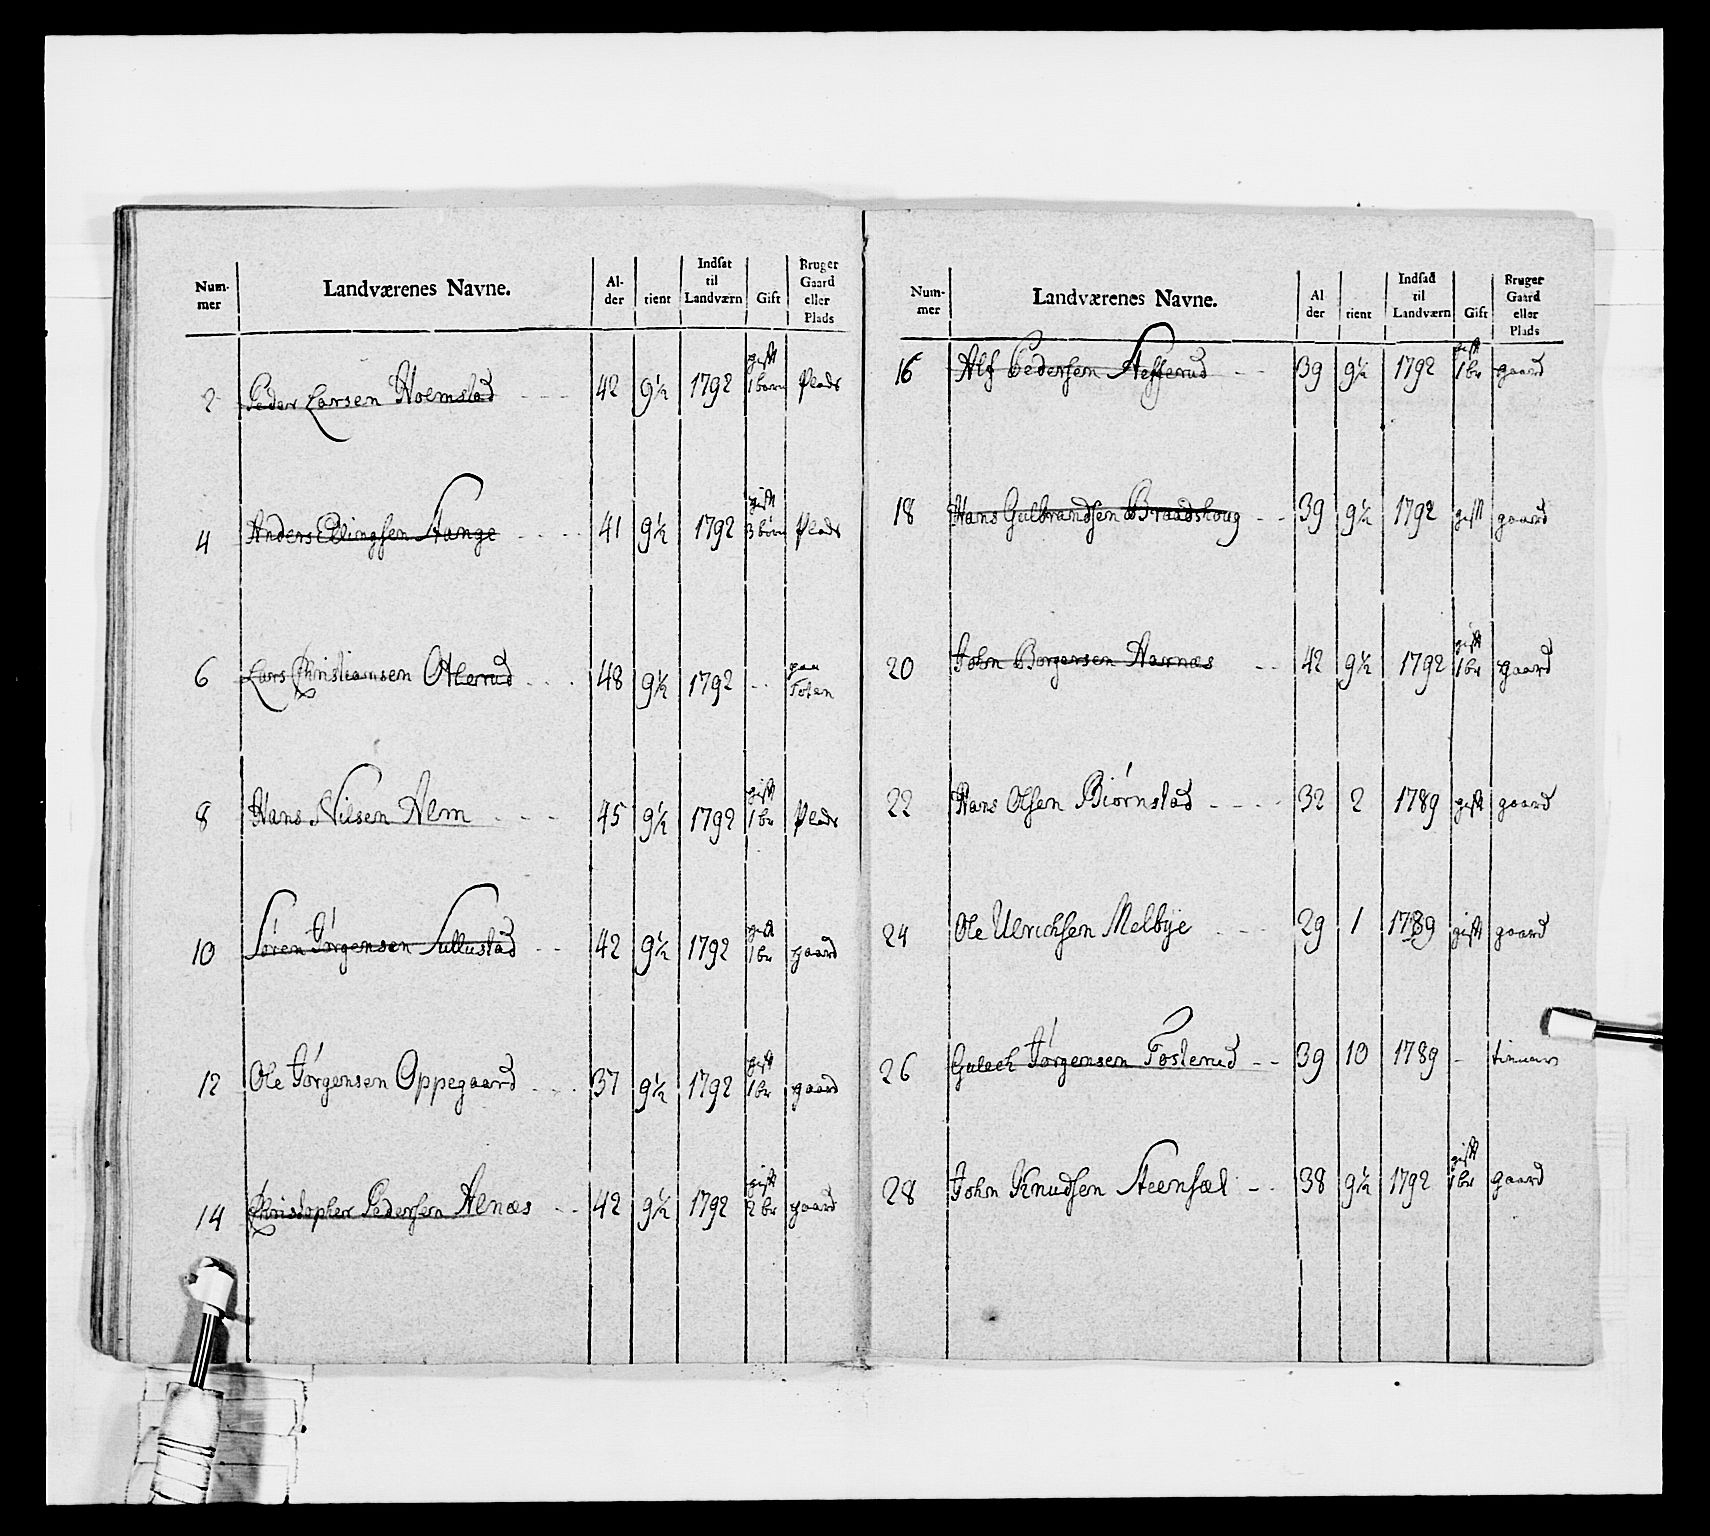 Num-
mer
Landværenes Navne.
Al-
der
tient
Indsat
til
Landværn
Gift
Bruger
Gaard
eller
Plads
2 Peder Larsen Holmstad 42 9½ 1792 gift 1 barn Plads
4 Anders Ellingsen Stange 41 9½ 1792 gift 3 börn Plads
6 Lars Christiansen Otterud 48 9½ 1792 paa Toten
8 Hans Nilsen Alm 45 9½ 1792 gift 1 br Plads
10 Sören Jörgensen Sullustad 42 9½ 1792 gift 1 br gaard
12 Ole Jörgensen Oppegaard 37 9½ 1792 gift 1 br gaard
14 Christopher Pedersen Alnæs 42 9½ 1792 gift 2 br gaard
Num-
mer
Landværenes Navne.
Al
der
tient
Indsad
til
Landværn
Gift
Bruger
Gaard
eller
Plads
16 Alf Pedersen 39 9½ 1792 gift 1 br gaard
18 Hans Gulbrandsen Braadshoug 39 9½ 1792 gift gaard
20 John Borgersen Aarnæs 42 9½ 1792 gift 1 br gaard
22 Hans Olsen Biörnstad 32 2 1789 gift gaard
24 Ole Ulrichsen Melbye 29 1 1789 gift gaard
26 Jörgensen Fosterud 39 10 1789
28 John Knudsen Steensæt 38 9½ 1792 gift 1 br gaard